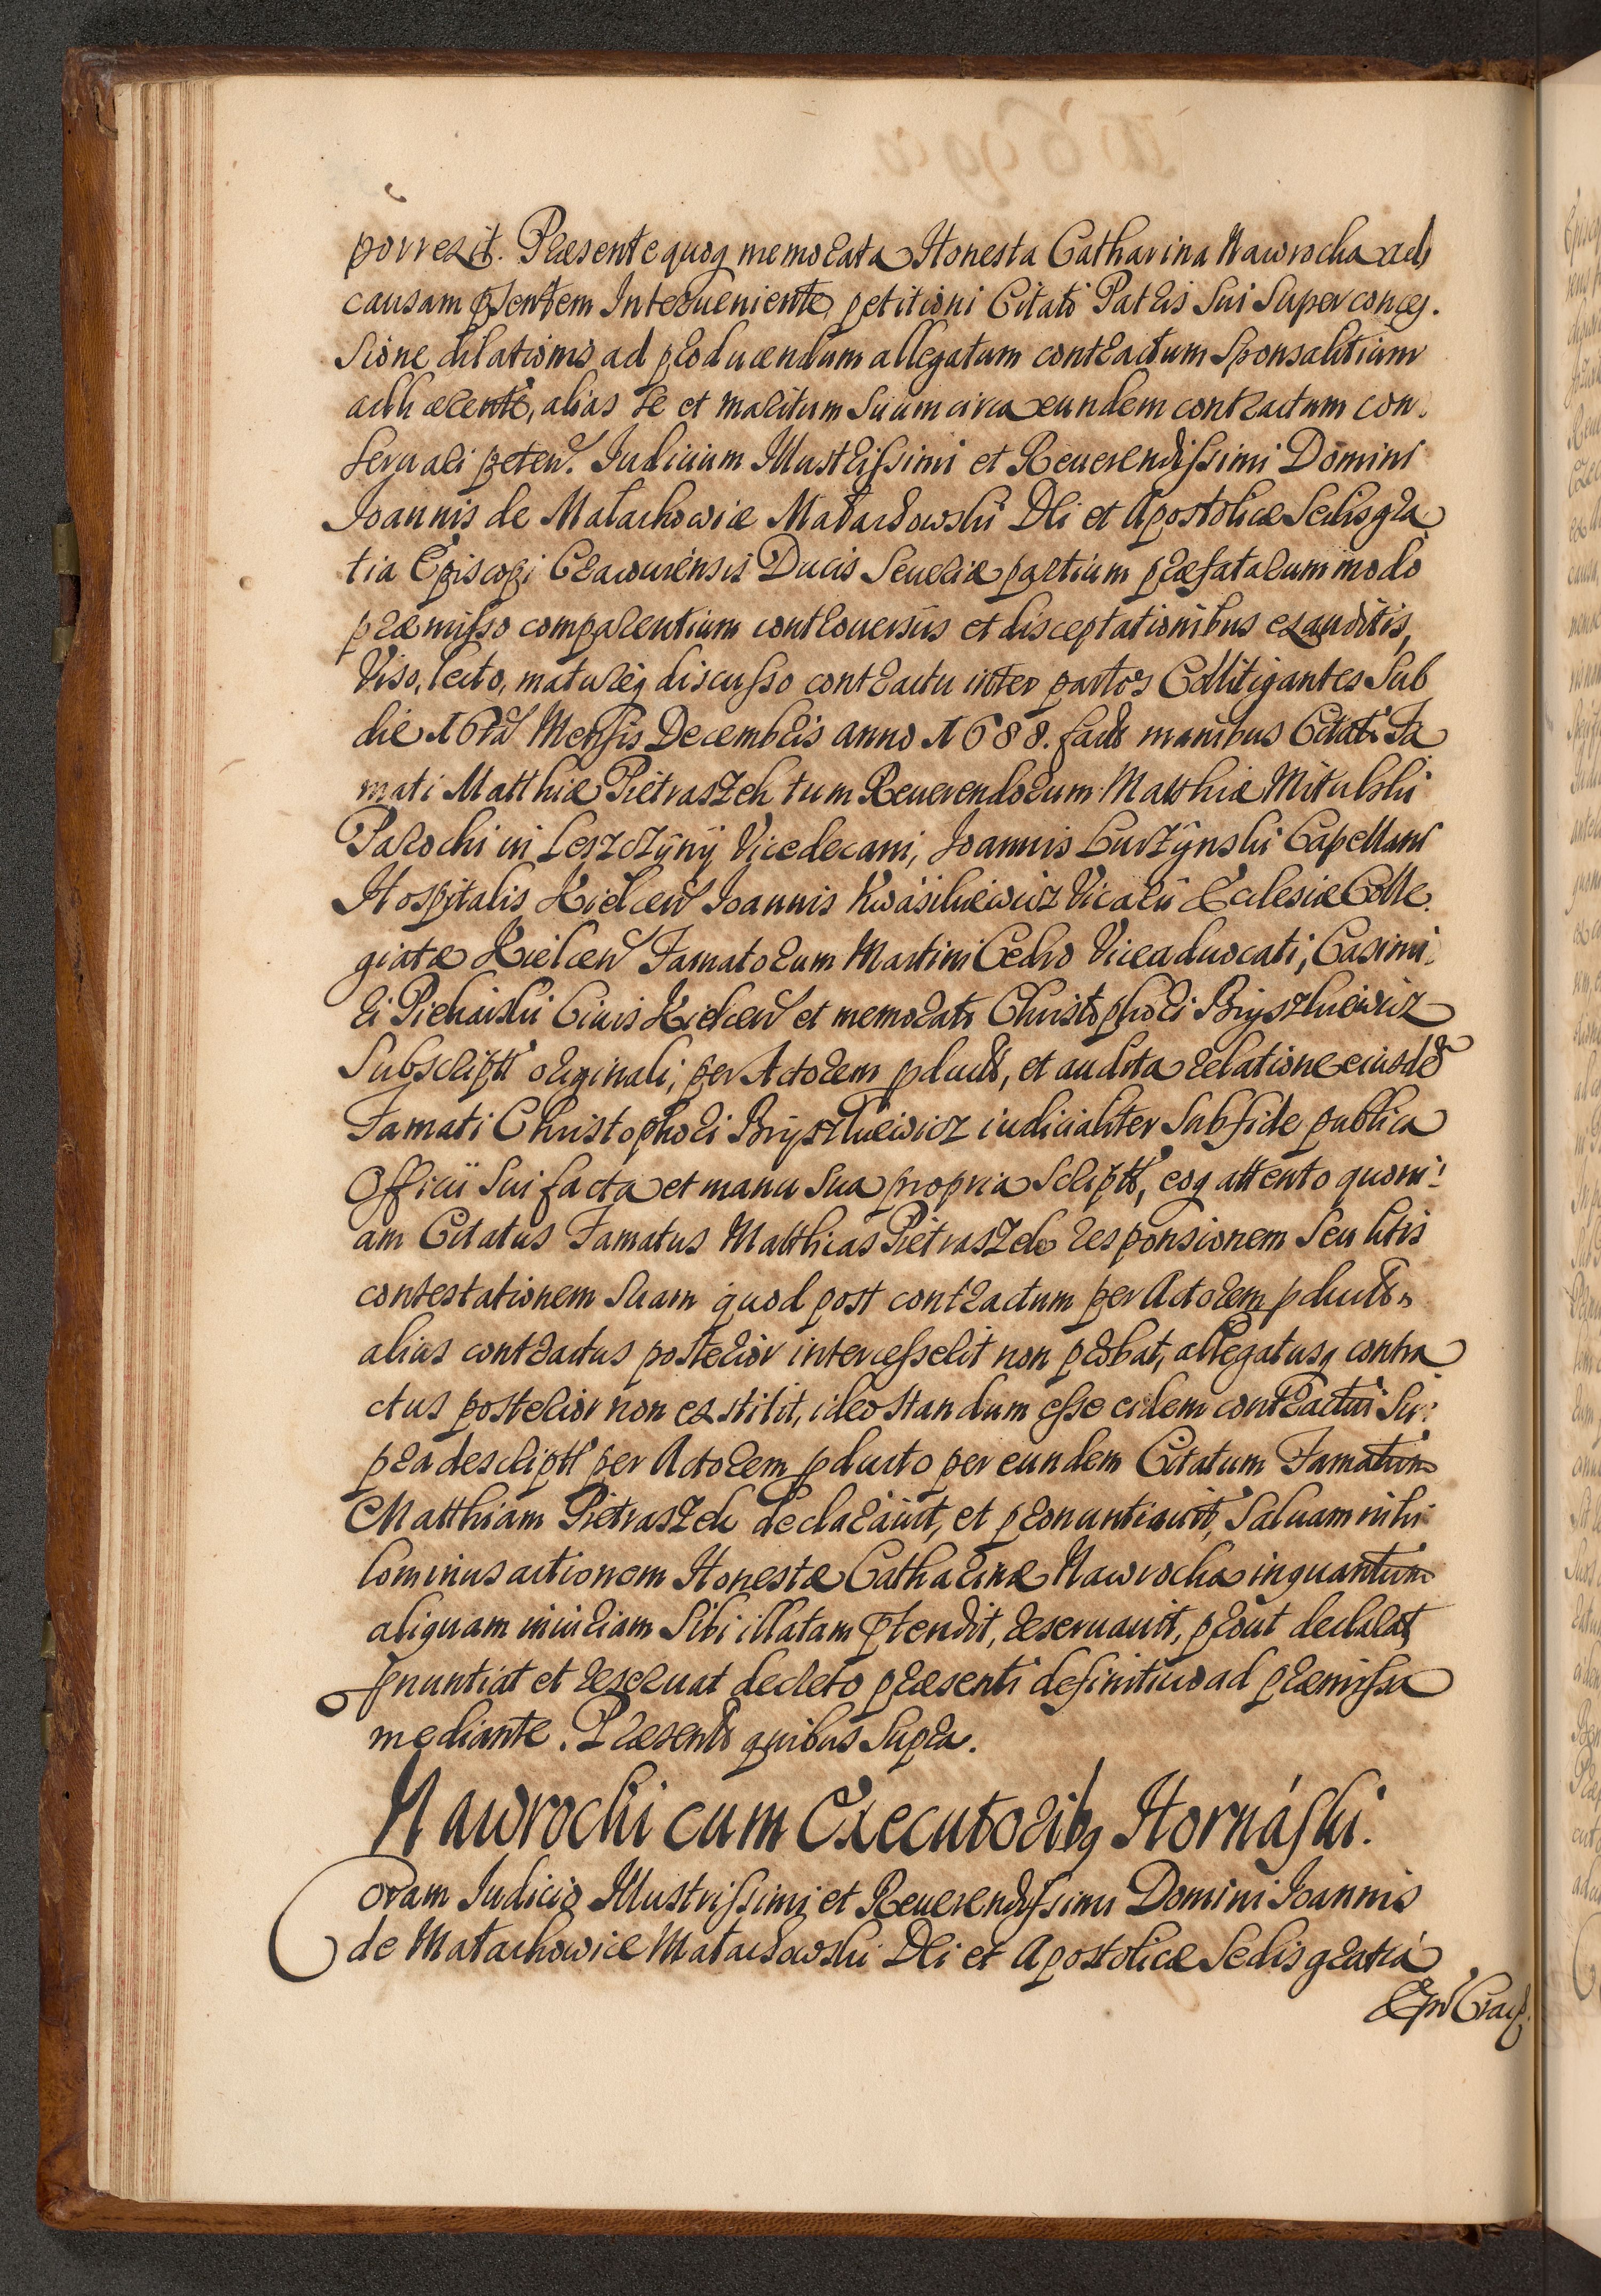 porrexit. Præsente quoq memorata Honesta Catharina Nawrocka ad
causam pſentem Interueniente petitioni Citati Patris Sui Super conceſ.
Sione dilationis ad producendum allegatum contractum Sponsalitium
adhærente, alias Se et maritum Suum circa eundem contractum con.
Seruari peten. Iudicium Illustriſsimi et Reuerendiſsimi Domini
Ioannis de Małachowice Małachowski Dei et Apostolicæ Sedis gra
tia Episcopi Cracouiensis Ducis Seueriæ partium præfatarum modo
præmiſso comparentium controuersiis et disceptationibus exauditis,
Viso, lecto, matureq discuſso contractu inter partes Collitigantes Sub
die 16ta Menſis Decembris anno 1688. facto manibus Citati Fa
mati Matthiæ Pietraszek tum Reuerendorum Matthiæ Mitulski
Parochi in Leszczÿnÿ Vicedecani, Ioannis Burzÿnski Capellani
Hospitalis Kielcen Ioannis Kwásikiewicz Vicarii Ecclesiæ Colle.
giatæ Kielcen Famatorum Martini Cedro Viceaduocati, Casimi.
ri Piekarski Ciuis Kielcen et memorati Christophori Bryszkiewicz
Subscriptt originali, per Actorem pducto, et audita relatione eiusdē
Famati Christophori Bryszkiewicz iudicialiter Sub fide publica
Officii Sui facta et manu Sua propria Scriptt, eoq attento quoni.
am Citatus Famatus Matthias Pietraszek responsionem Seu litis
contestationem Suam quod post contractum per Actorem pductu
alius contractus posterior interceſserit non probat, allegatusq contra
ctus posterior non exstitit, ideo Standum eſse eidem contractui Su.
pra descriptt per Actorem pducto per eundem Citatum Famatum
Matthiam Pietraszek declarauit, et pronuntiauit, Saluam nihi
lominus actionem Honestæ Catharinæ Nawrocka inquantum
aliquam iniuriam Sibi illatam ptendit, reseruauit, prout declarat
pnuntiat et reseruat decreto præsenti definitiuo ad præmiſsa
mediante. Præsentt quibus Supra.
Nawrocki cum Executoribq Hornáſki.
Coram Iudicio Illustriſsimi et Reuerendiſsimi Domini Ioannis
de Małachowice Małachowski Dei et Apostolicæ Sedis gratia
Epi Crac.